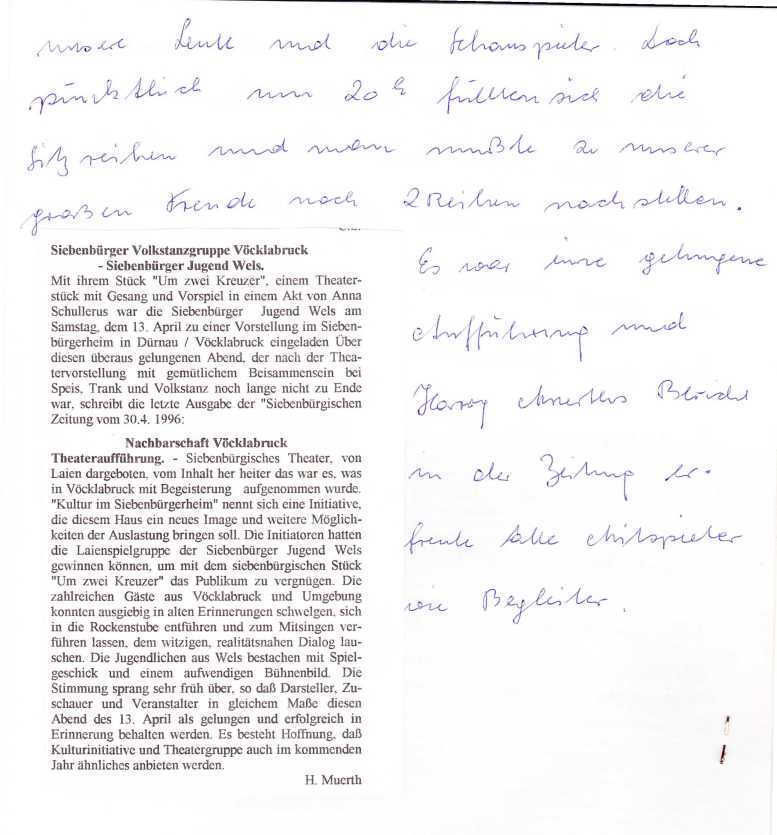 unsere Leute und die Schauspieler. Doch
pünktlich um 20h füllten sich die
Sitzreihen und man mußte zu unserer
großen Freude noch 2 Reihen nachstellen.
Siebenbürger Volkstanzgruppe Vöcklabruck
- Siebenbürger Jugend Wels.
Mit ihrem Stück "Um zwei Kreuzer", einem Theater-
stück mit Gesang und Vorspiel in einem Akt von Anna
Schullerus war die Siebenbürger Jugend Wels am
Samstag, dem 13. April zu einer Vorstellung im Sieben-
bürgerheim in Dürnau / Vöcklabruck eingeladen Über
diesen überaus gelungenen Abend, der nach der Thea-
tervorstellung mit gemütlichem Beisammensein bei
Speis, Trank und Volkstanz noch lange nicht zu Ende
war, schreibt die letzte Ausgabe der "Siebenbürgischen
Zeitung vom 30.4. 1996:
Nachbarschaft Vöcklabruck
Theateraufführung. - Siebenbürgisches Theater, von
Laien dargeboten, vom Inhalt her heiter das war es, was
in Vöcklabruck mit Begeisterung aufgenommen wurde.
"Kultur im Siebenbürgerheim" nennt sich eine Initiative,
die diesem Haus ein neues Image und weitere Möglich-
keiten der Auslastung bringen soll. Die Initiatoren hatten
die Laienspielgruppe der Siebenbürger Jugend Wels
gewinnen können, um mit dem siebenbürgischen Stück
"Um zwei Kreuzer" das Publikum zu vergnügen. Die
zahlreichen Gäste aus Vöcklabruck und Umgebung
konnten ausgiebig in alten Erinnerungen schwelgen, sich
in die Rockenstube entführen und zum Mitsingen ver-
führen lassen, dem witzigen, realitätsnahen Dialog lau-
schen. Die Jugendlichen aus Wels bestachen mit Spiel-
geschick und einem aufwendigen Bühnenbild. Die
Stimmung sprang sehr früh über, so daß Darsteller, Zu-
schauer und Veranstalter in gleichem Maße diesen
Abend des 13. April als gelungen und erfolgreich in
Erinnerung behalten werden. Es besteht Hoffnung, daß
Kulturinitiative und Theatergruppe auch im kommenden
Jahr ähnliches anbieten werden.
H. Muerth
Es war eine gelungene
Aufführung und
Muerths Bericht
in der Zeitung er-
freute alle Mitspieler
wie Begleiter.